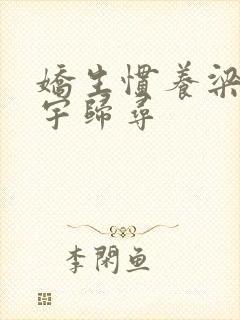 嬌生慣養梁
宇歸尋
李閑魚